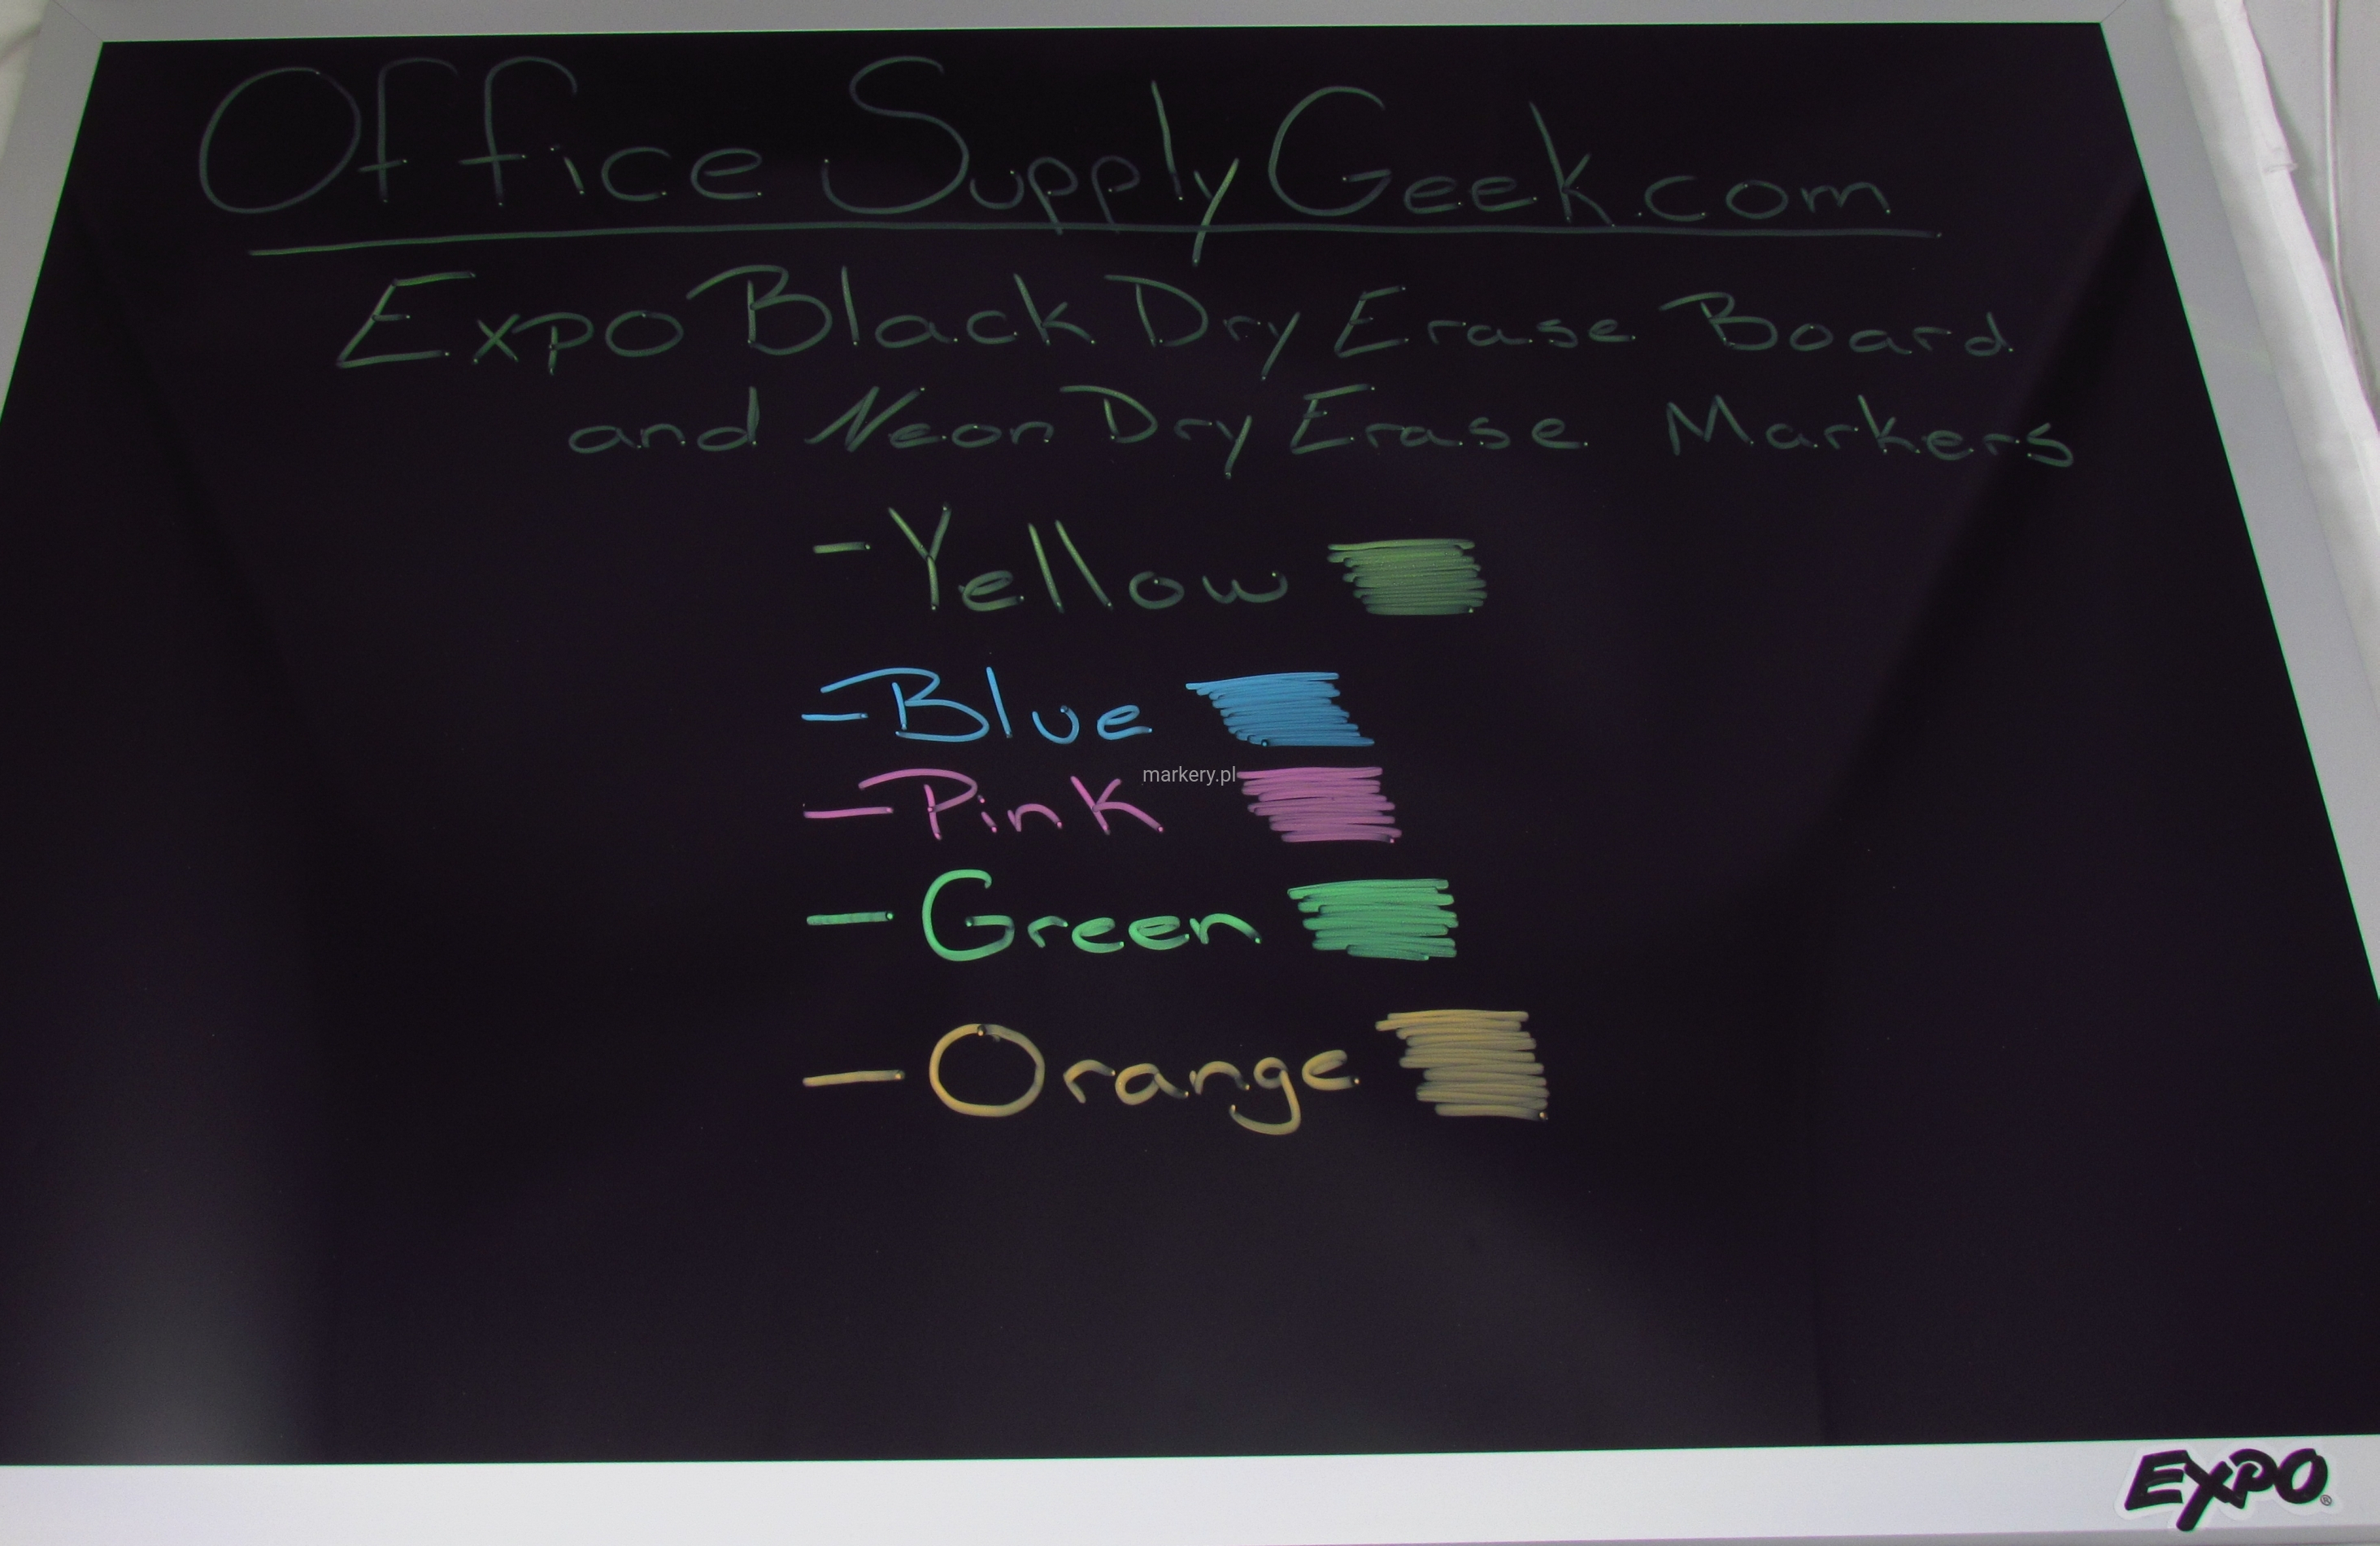 Office Supply Geek.com
Expo Black Dry Erase Board
and Neon Dry Erase Markers
- Yellow
- Blue
markery.pl
- Pink
- Green
- Orange
EXPO®